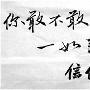 你敢不敢
一如
信